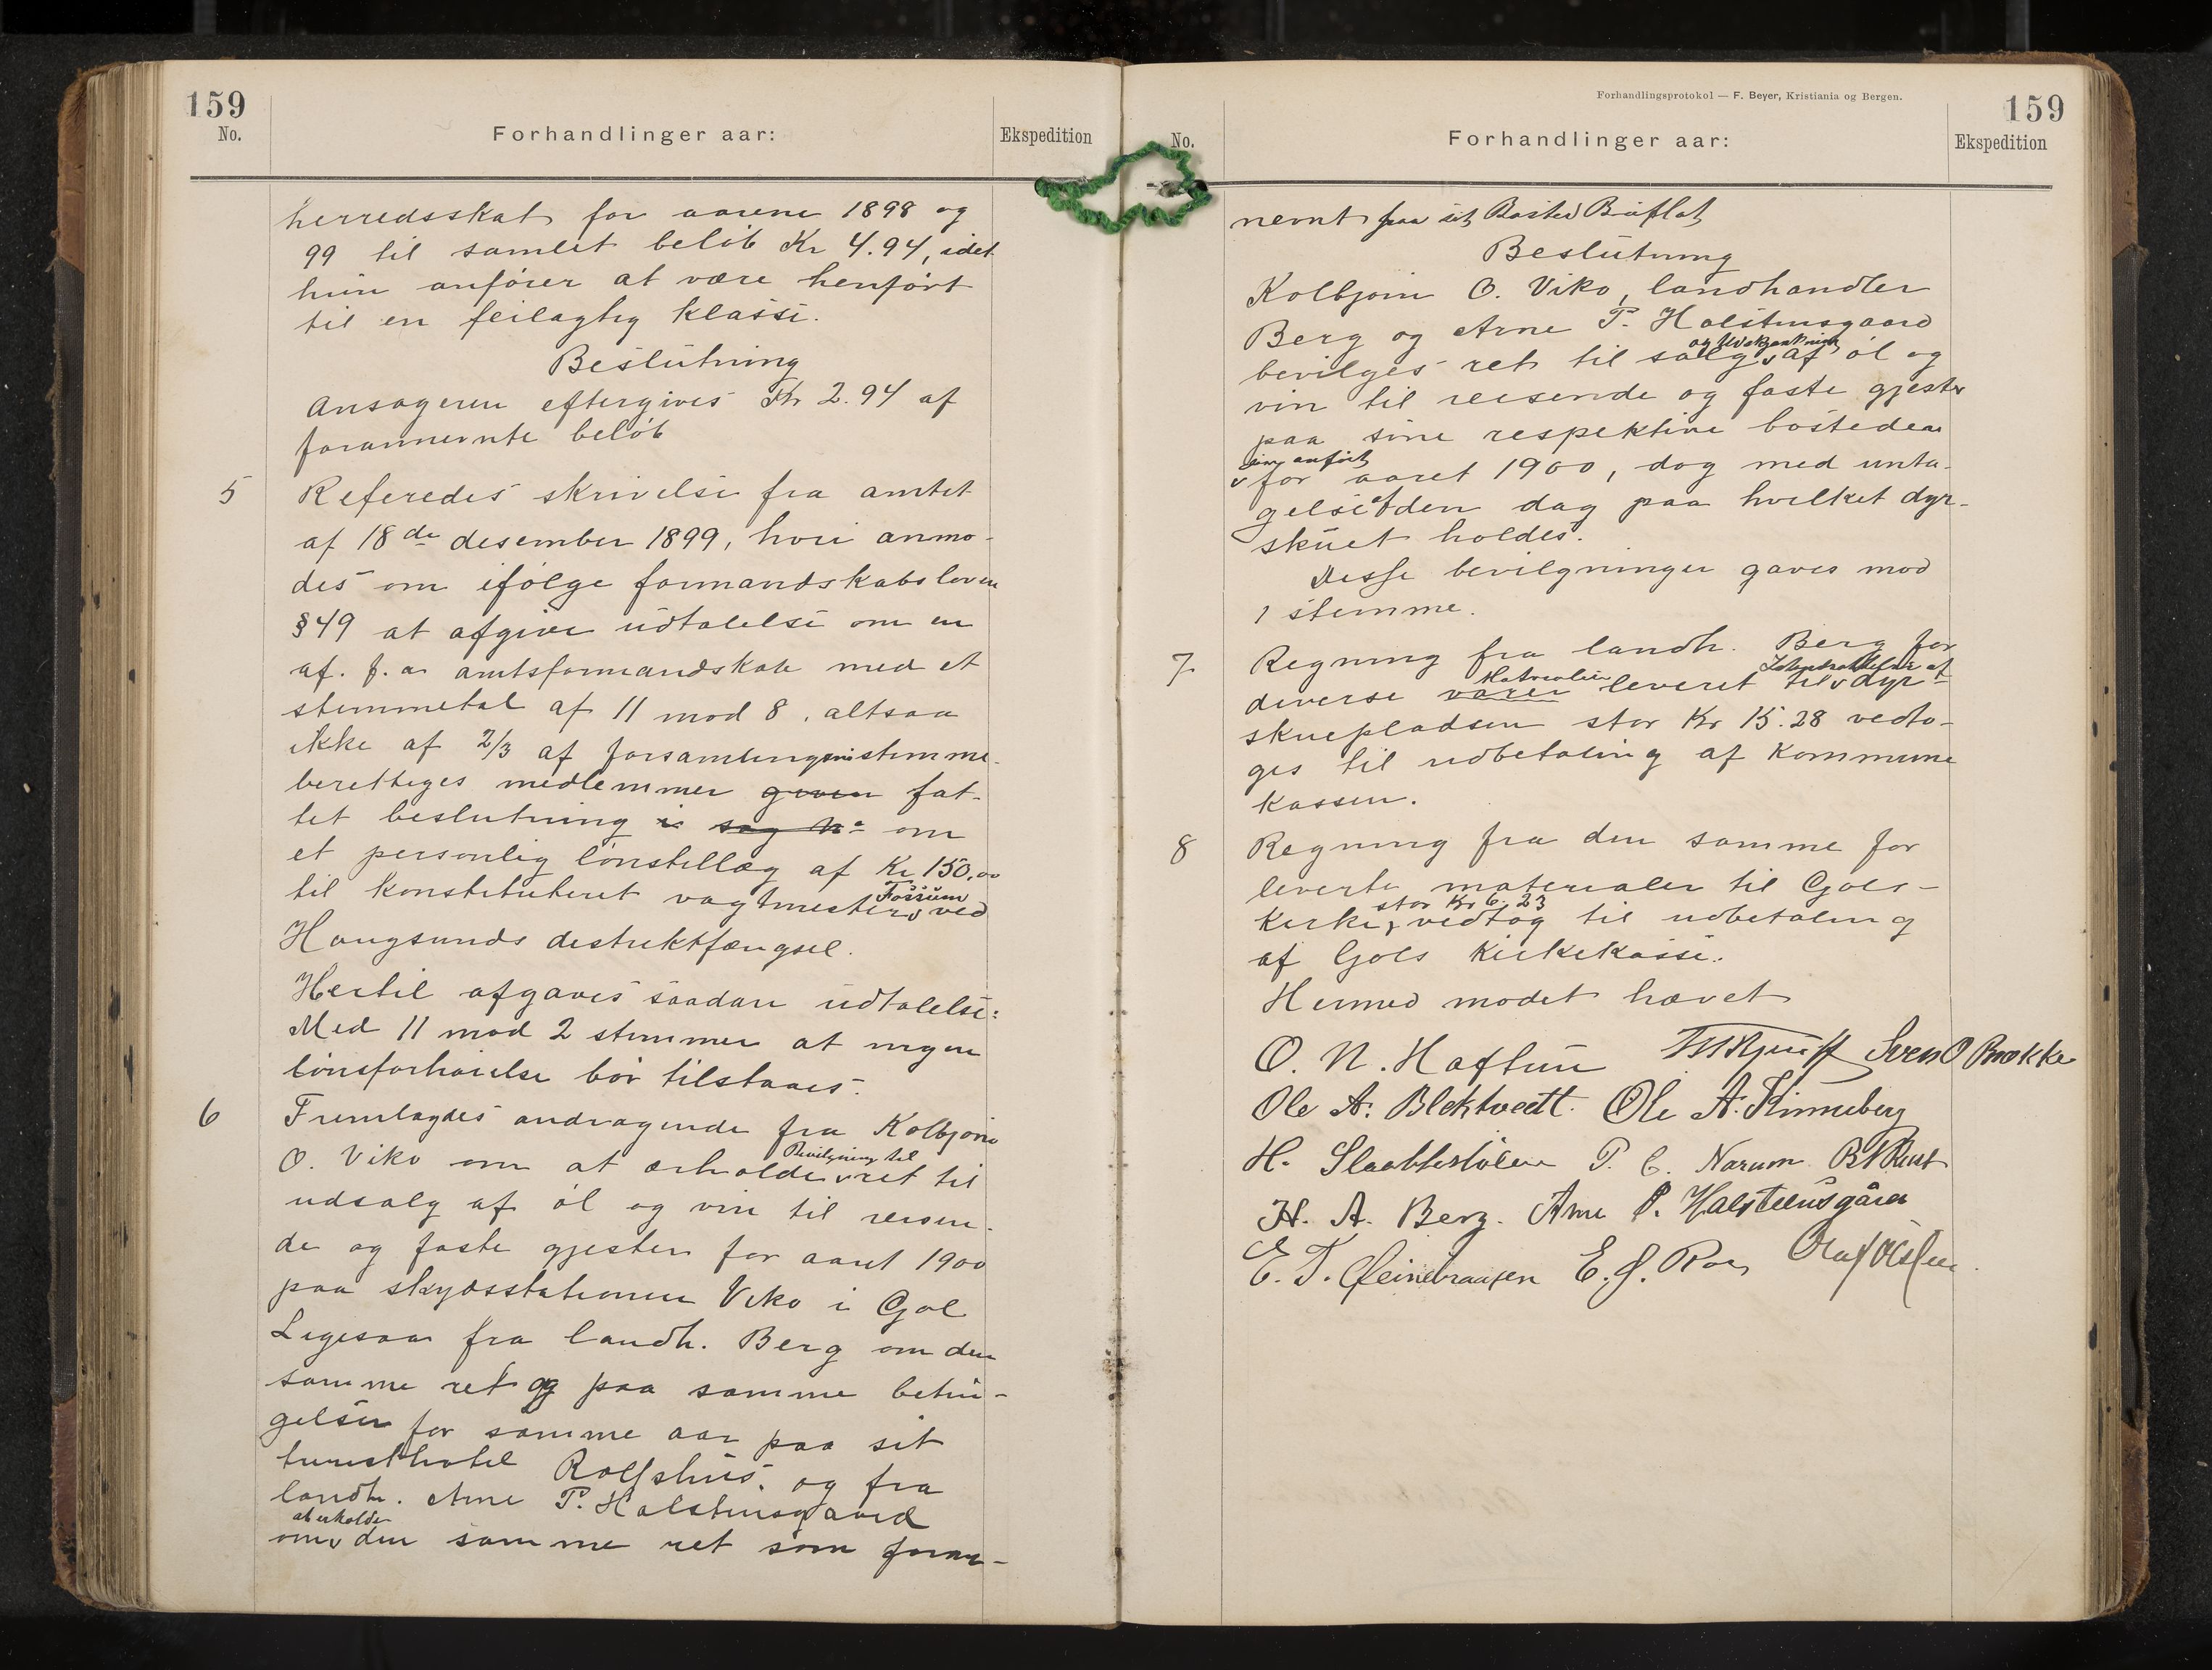 159
No.
Forhandlinger aar:
Ekspedition
herredsskat for aarene 1898 og
99 til samlet beløb Kr 4.94, idet
hun anfører at være henført
til en feilagtig klasse.
Beslutning
Ansøgeren eftergives Kr 2.94 af
forannevnte beløb
5 Referedes skrivelse fra amtet
af 18de desember 1899, hvori anmo-
des om ifølge formandskabsloven
§ 49 at afgive udtalelse om en
af f. a. amtsformandskab med et
stemmetal af 11 mod 8, altsaa
ikke af 2/3 af forsamlingens stemme-
berettiges medlemmer given fat-
tet beslutning i sag No om
et personlig lønstillæg af Kr 150.00
til konstitueret vagtmester Fossum ved
Hougsunds destriktfængsel.
Hertil afgaves saadan udtalelse:
Med 11 mod 2 stemmer at ingen
lønsforhøielse bør tilstaaes.
6 Fremlagdes andragende fra Kolbjørn
O. Viko om at erholde Bevilgning til ret til
udsalg af øl og vin til reisen-
de og faste gjester for aaret 1900
paa skydsstationen Viko i Gol
Ligesaa fra landh. Berg om den
samme ret og paa samme betin-
gelser for samme aar paa sit
turisthotel Rolfshus, og fra
landh. Arne P. Halstensgaard
om at erholde den samme ret som foran-
Forhandlingsprotokol — F. Beyer, Kristiania og Bergen.
159
No.
Forhandlinger aar:
Ekspedition
nevnt paa sit Bosted Búflat
Beslutning
Kolbjørn O. Viko, landhandler
Berg og Arne P. Halstensgaard
bevilges ret til salg og Udskjænkning af øl og
vin til reisende og faste gjester
paa sine respektive bosteder
som anført for aaret 1900, dog med unta-
gelse af den dag paa hvilket dyr-
skuet holdes.
Disse bevilgninger gaves mod
1 stemme.
7 Regning fra landh. Berg for
diverse varer Materialier leveret til Istandsættelse af dyr-
skuepladsen stor Kr 15.28 vedto-
ges til udbetaling af Kommune
kassen.
8 Regning fra den samme for
leverte materialer til Gols-
kirke, stor Kr 6.23 vedtog til udbetaling
af Gols Kirkekasse.
Hermed mødet hævet
O. N. Haftun Sven O Brække
Ole A. Blektvedt. Ole A. Kinneberg
H. Slaattestølen P. C. Narum B N Rust
H. A. Berg. Arne P. Halsteensgård
E. T. Gleinebraaten E. J. Roe Olaf Olsen